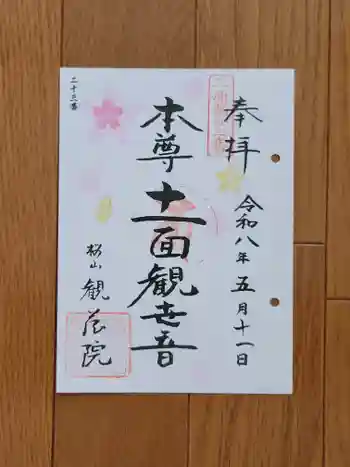 奉拝
令和八年五月十一日
本尊十一面観世音
二十三番
桜山
観音院